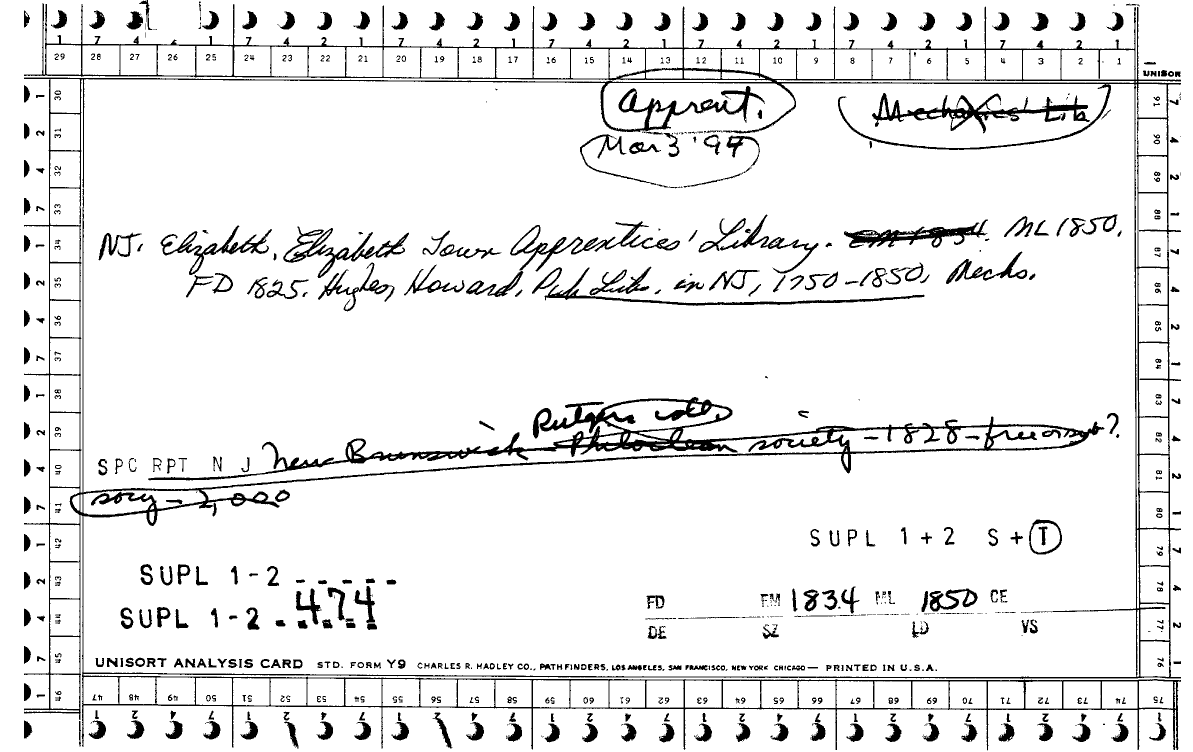 1 7 4 1 7 4 2 1 7 4 2 1 7 4 2 1 7 4 2 1 7 4 2 1 7 4 2 1
29 28 27 26 25 24 23 22 21 20 19 18 17 16 15 14 13 12 11 10 9 8 7 6 5 4 3 2 1
UNISORT
Apprent. Mechanics' Lib
Mar 3 '94
NJ. Elizabeth. Elizabeth Town Apprentices' Library. EM 1834. ML 1850.
FD 1825. Hughes, Howard. Pub Libs. in NJ, 1750-1850, Mechs.
Rutgers coll.
SPC RPT N J New Brunswick - Philoclean society - 1828 - free or sub?
socy - 2,000
SUPL 1+2 S+T
SUPL 1-2 - - - - -
SUPL 1-2 474
FD EM 1834 ML 1850 CE
DE SZ LD VS
UNISORT ANALYSIS CARD STD. FORM Y9 CHARLES R. HADLEY CO., PATHFINDERS, LOS ANGELES, SAN FRANCISCO, NEW YORK CHICAGO — PRINTED IN U.S.A.
47 48 49 50 51 52 53 54 55 56 57 58 59 60 61 62 63 64 65 66 67 68 69 70 71 72 73 74 75